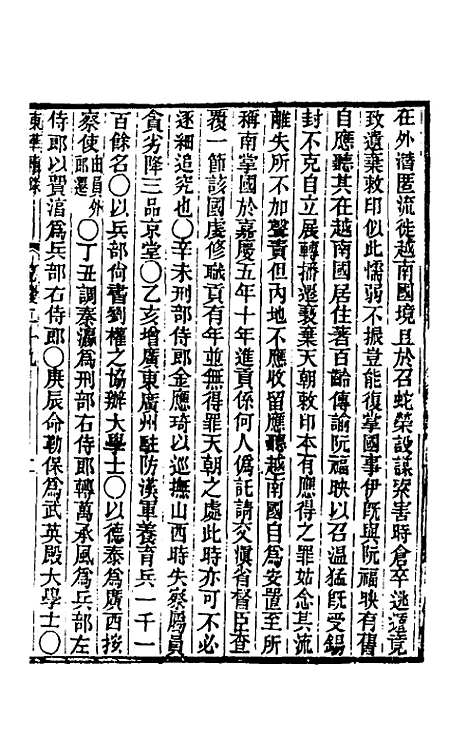 在外潛匿流徙越南國境且於召蛇榮設謀戕害時倉卒逃遁竟
致遺棄敕印似此懦弱不振豈能復掌國事伊既與阮福映有舊
自應聽其在越南國居住著百齡傳諭阮福映以召溫猛既受錫
封不克自立展轉播遷褻棄天朝敕印本有應得之罪姑念其流
離失所不加聲責但內地不應收留應聽越南國自為安置至所
稱南掌國於嘉慶五年十年進貢係何人偽託請交滇省督臣查
覆一節該國虔修職貢有年並無得罪天朝之處此時亦可不必
逐細追究也○辛未刑部侍郎金應琦以巡撫山西時失察屬員
貪劣降三品京堂○乙亥增廣東廣州駐防漢軍養育兵一千一
百餘名○以兵部尚書劉權之協辦大學士○以德泰為廣西按
察使由員外郎遷○丁丑調秦瀛為刑部右侍郎轉萬承風為兵部左
侍郎以賀濬為兵部右侍郎○庚辰命勒保為武英殿大學士○
東華續錄　嘉慶二十九